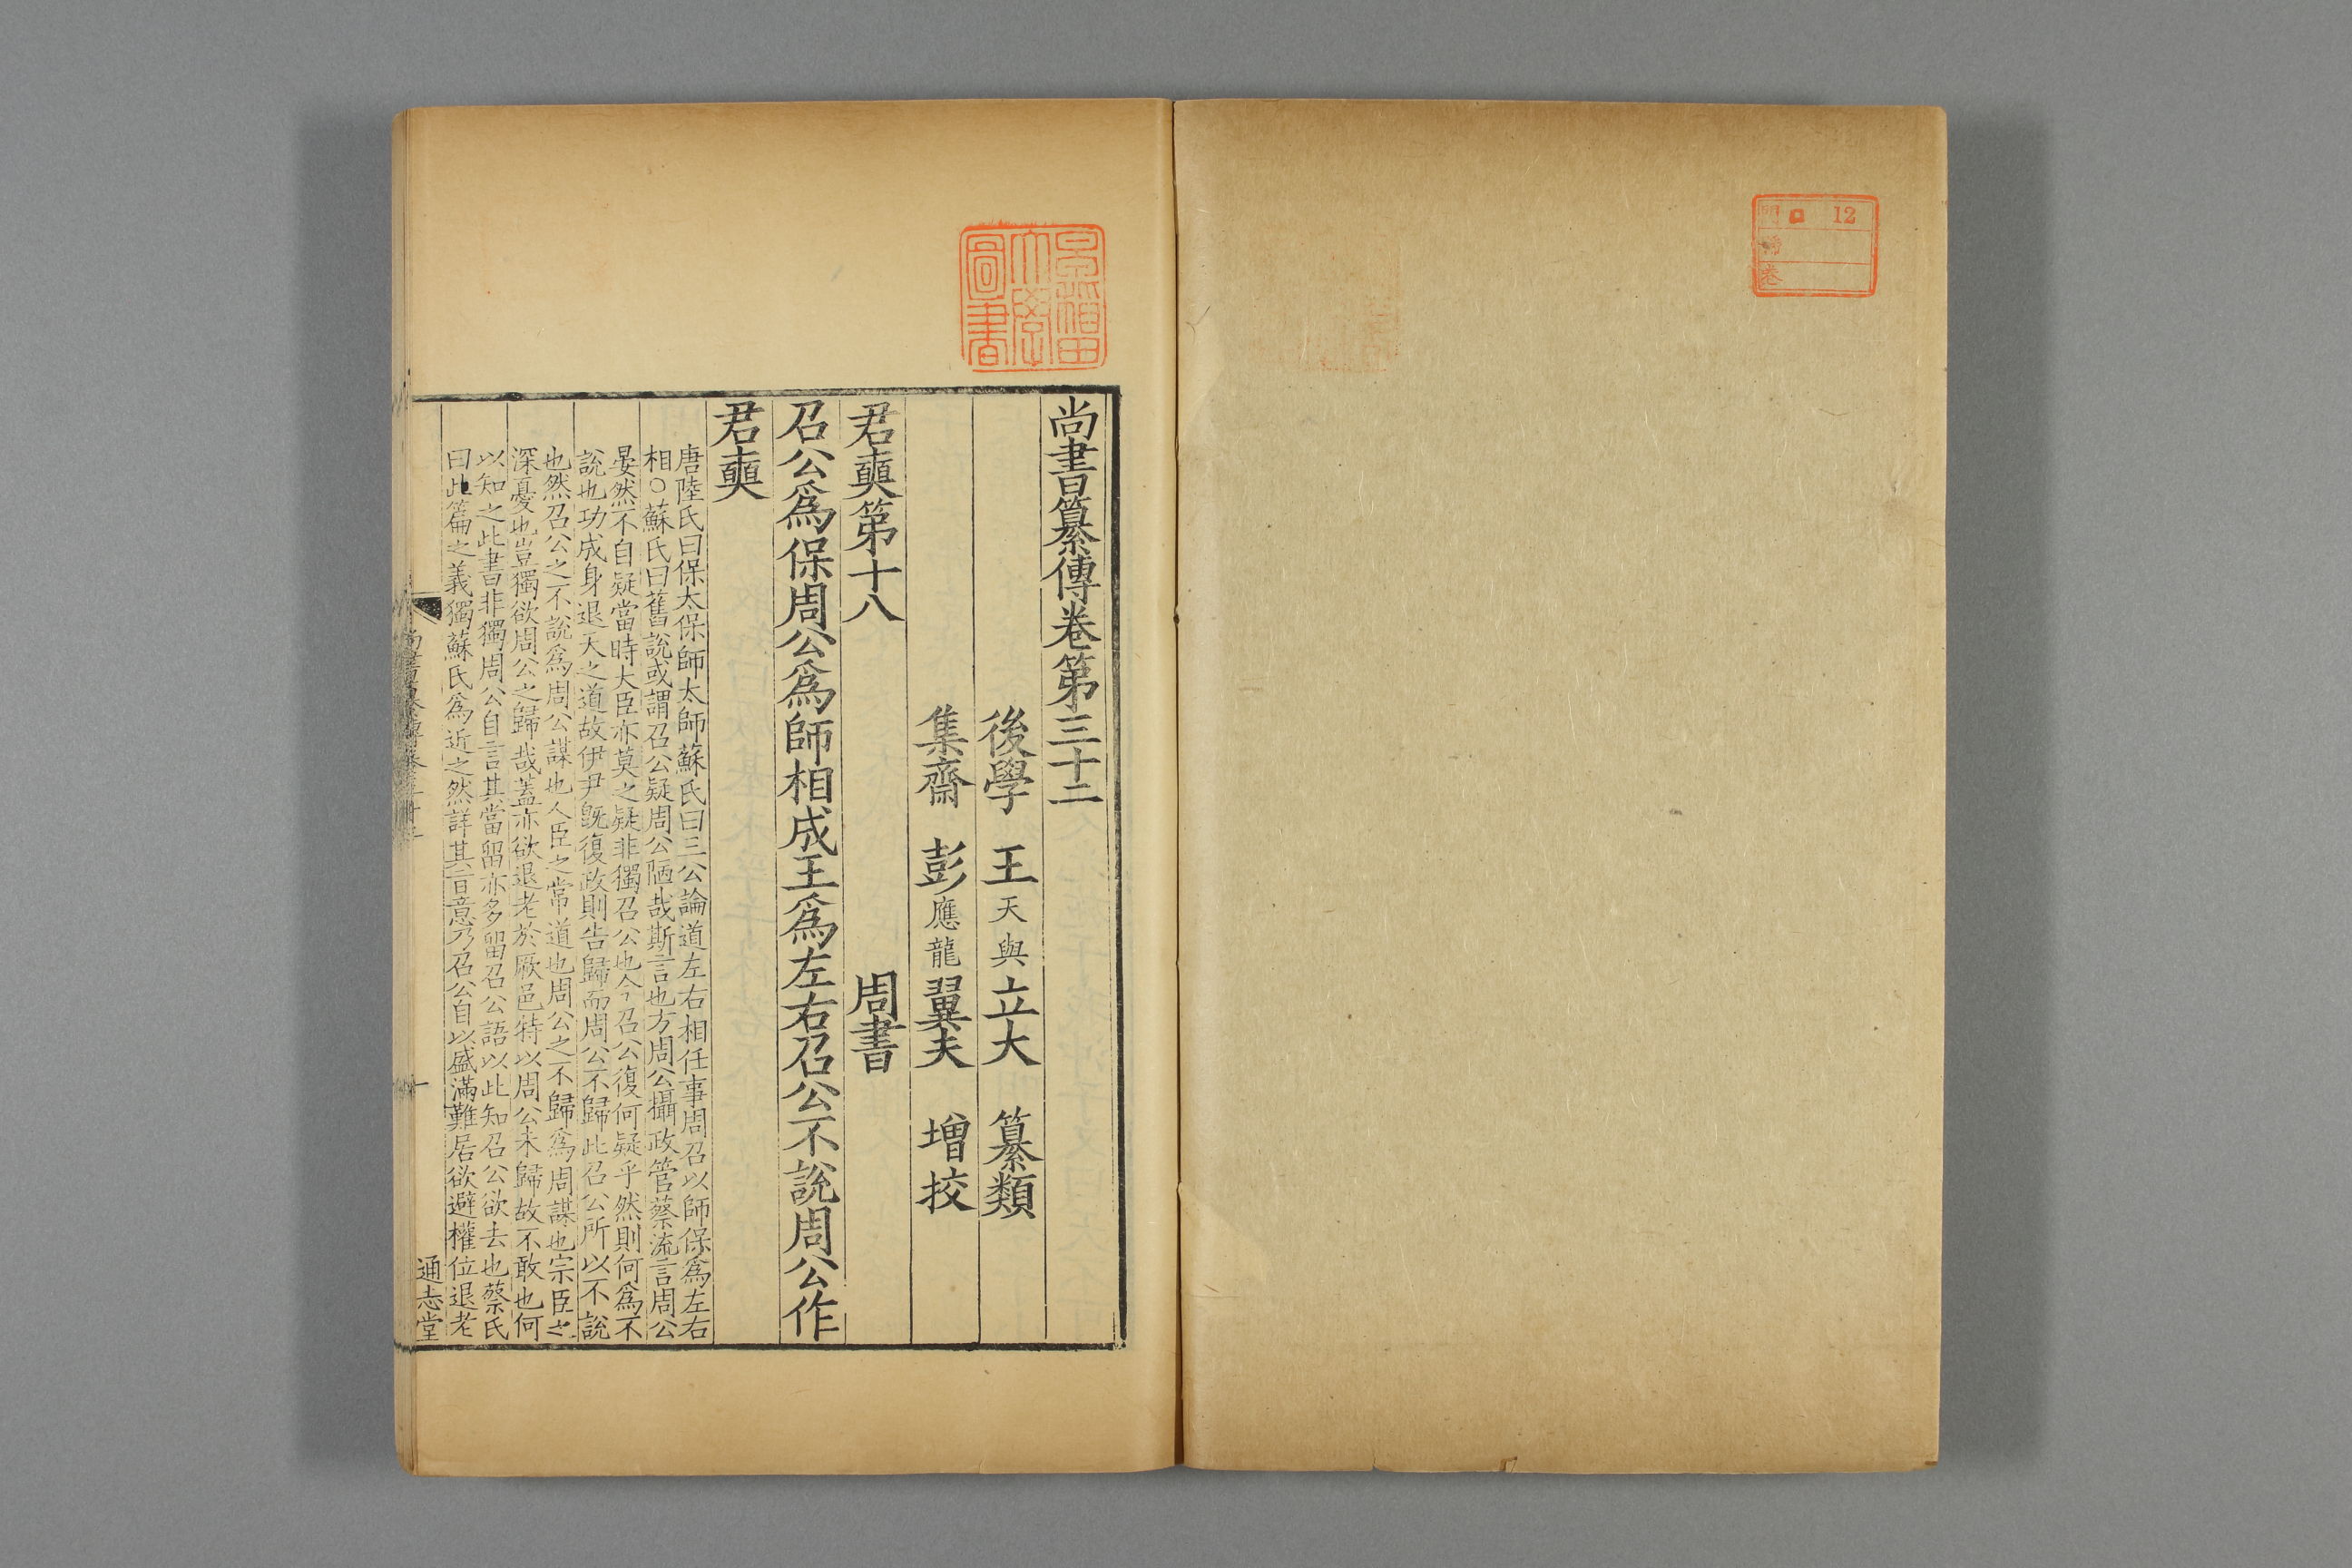 門 口 12
號
巻
早稲田大學圖書
尚書纂傳卷第三十二
後學 王天與立大 纂類
集齋 彭應龍翼夫 增挍
君奭第十八 周書
召公爲保周公爲師相成王爲左右召公不說周公作
君奭
唐陸氏曰保太保師太師蘇氏曰三公論道左右相任事周召以師保爲左右
相○蘇氏曰舊說或謂召公疑周公陋哉斯言也方周公攝政管蔡流言周公
晏然不自疑當時大臣亦莫之疑非獨召公也今召公復何疑乎然則何爲不
說也功成身退天之道故伊尹旣復政則告歸而周公不歸此召公所以不說
也然召公之不說爲周公謀也人臣之常道也周公之不歸爲周謀也宗臣之
深憂也豈獨欲周公之歸哉蓋亦欲退老於厥邑特以周公未歸故不敢也何
以知之此書非獨周公自言其當留亦多留召公語以此知召公欲去也蔡氏
曰此篇之義獨蘇氏爲近之然詳其旨意乃召公自以盛滿難居欲避權位退老
通志堂